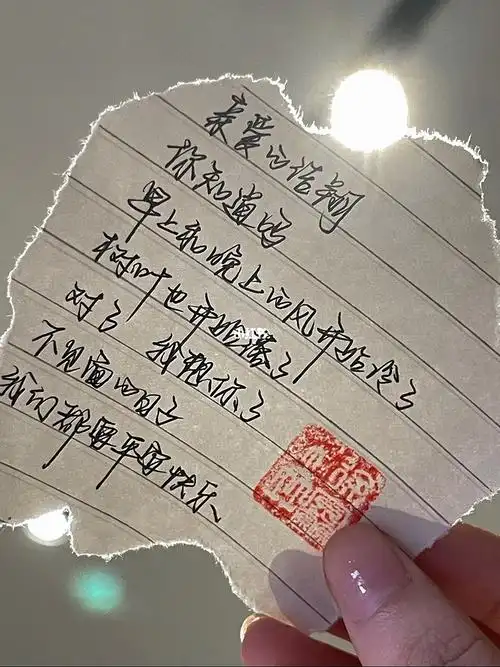 亲爱的浩翔
你知道吗
早上和晚上的风开始冷了
树叶也开始落了
对了 我想你了
不见面的日子
我们都要平安快乐